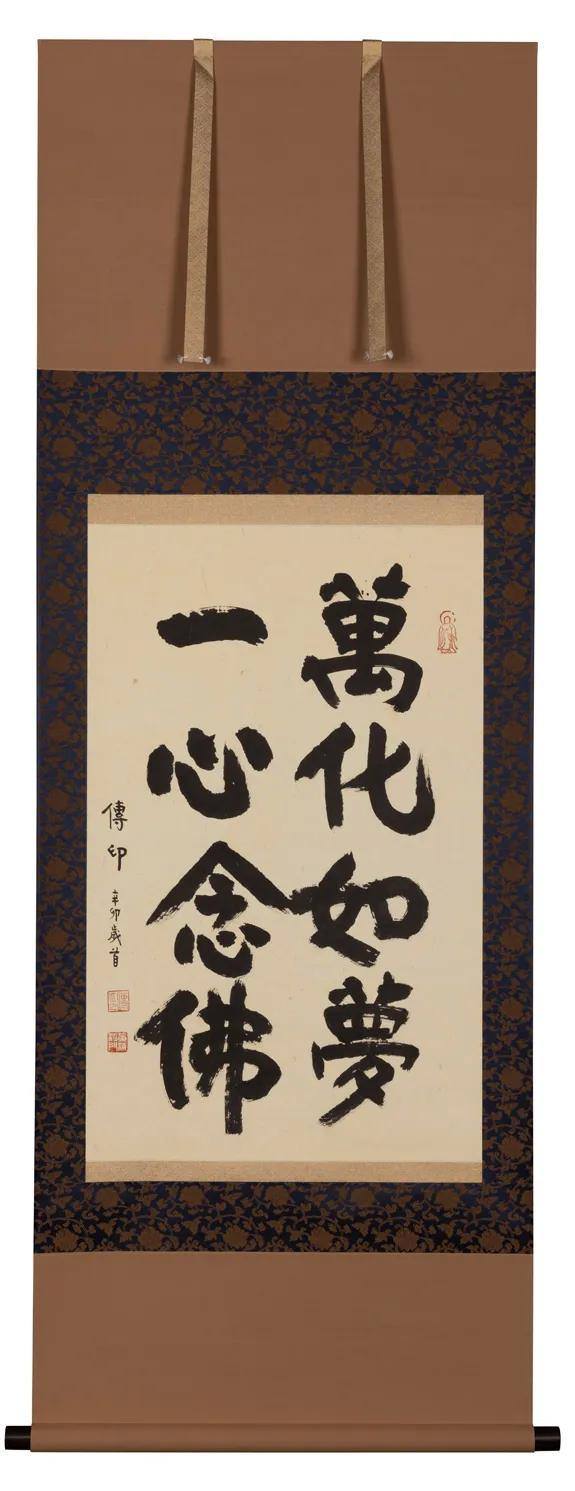 萬化如夢
一心念佛
傳印 辛卯歲首